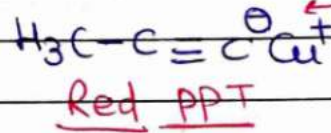 H₃C-C=C⊖ Cu⁺
Red PPT